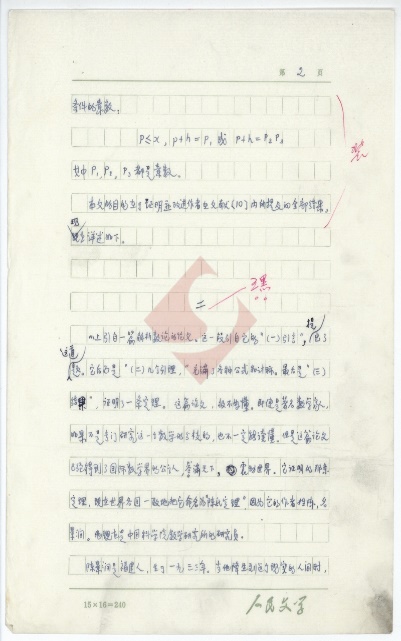 第 2 页
条件的素数:
p≤x, p+h=p₁ 或 p+h=p₂p₃
其中p₁, p₂, p₃都是素数。
本文的目的在于证明并改进作者在文献〔10〕内所提及的全部结果,
现在详述如下。
二
以上引自一篇解析数论的论文。这一段引自它的“(一)引言”,提出了
这道题。它后面是“(二)几个引理”,充满了各种公式和计算。最后是“(三)
结果”,证明了一条定理。这篇论文,极不好懂。即使是著名数学家,
如果不是专门研究这一个数学的分枝的,也不一定能读懂。但是这篇论文
已经得到了国际数学界的公认,誉满天下。它所证明的那条
定理,现在世界各国一致地把它命名为“陈氏定理”,因为它的作者姓陈,名
景润。他现在是中国科学院数学研究所的研究员。
陈景润是福建人,生于一九三三年。当他降生到这个现实的人间时,
15×16=240
人民文学